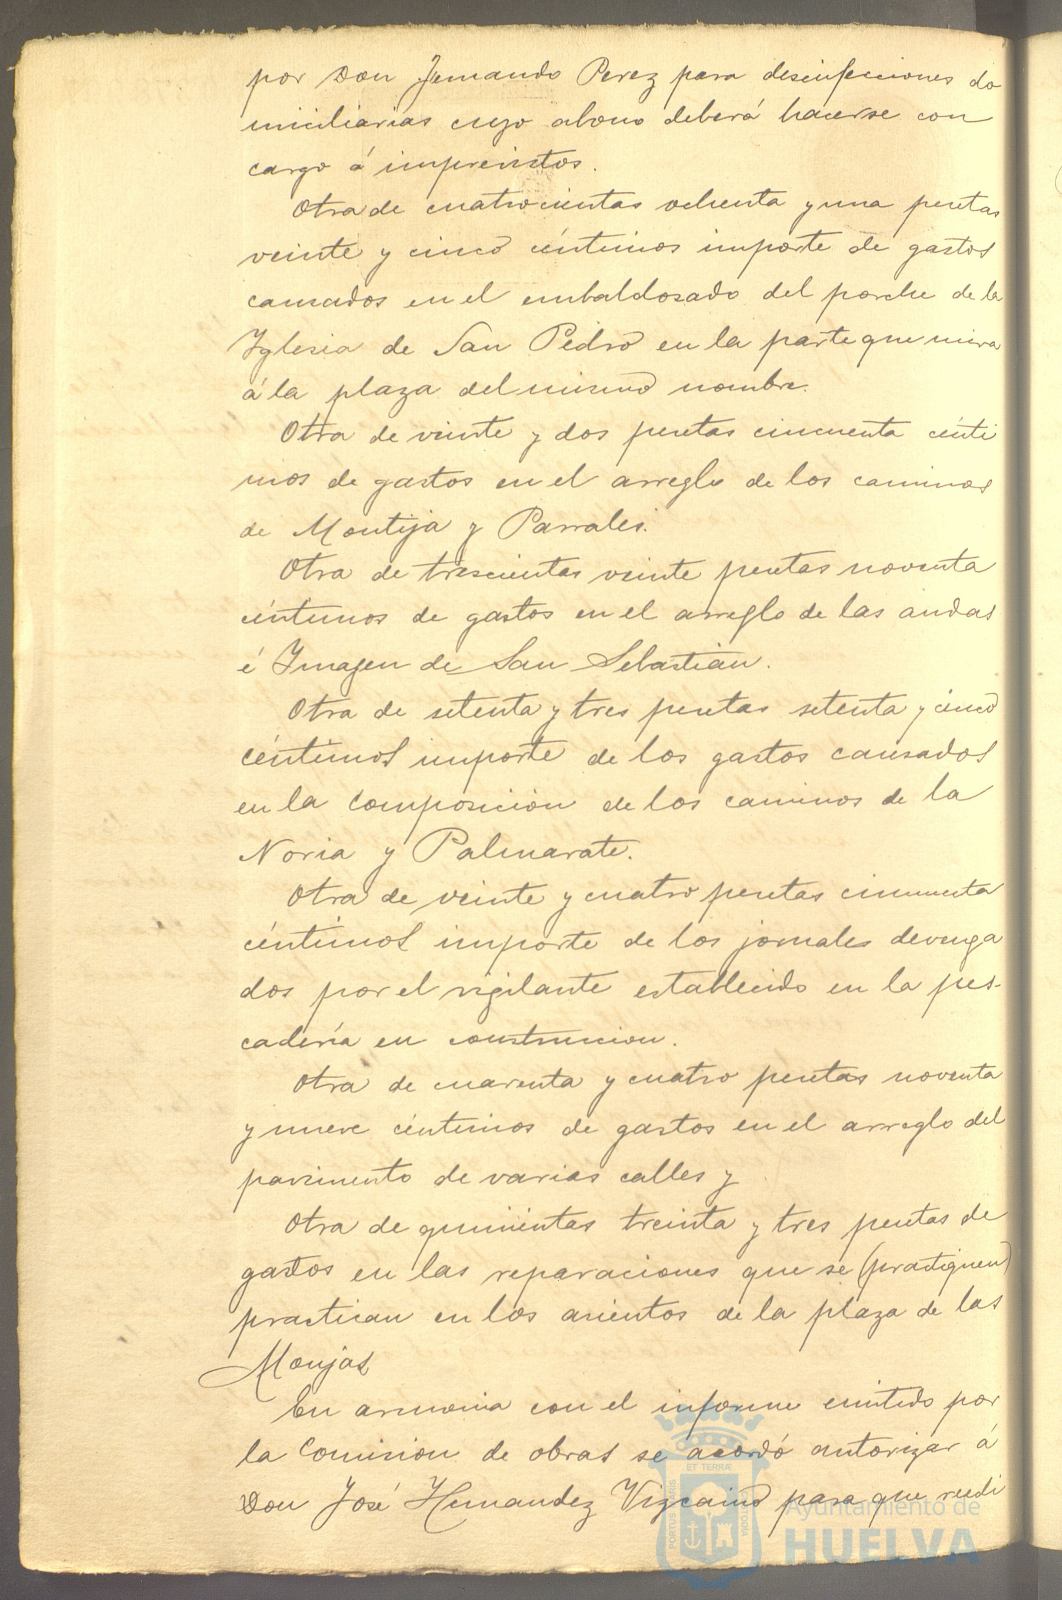 por Don Fernando Perez para desinfecciones do
miciliarias cuyo abono deberá hacerse con
cargo á imprevistos.
Otra de cuatrocientas ochenta y una pesetas
veinte y cinco céntimos importe de gastos
causados en el embaldosado del porche de la
Iglesia de San Pedro en la parte que mira
á la plaza del mismo nombre.
Otra de veinte y dos pesetas cincuenta cénti
mos de gastos en el arreglo de los caminos
de Montija y Parrales.
Otra de trescientas veinte pesetas noventa
céntimos de gastos en el arreglo de las andas
é Imagen de San Sebastián.
Otra de setenta y tres pesetas setenta y cinco
céntimos importe de los gastos causados
en la composición de los caminos de la
Noria y Palmarate.
Otra de veinte y cuatro pesetas cincuenta
céntimos importe de los jornales devenga
dos por el vigilante establecido en la pes-
cadería en construccion.
Otra de cuarenta y cuatro pesetas noventa
y nueve céntimos de gastos en el arreglo del
pavimento de varias calles y
Otra de quinientas treinta y tres pesetas de
gastos en las reparaciones que se (practiquen)
practican en los asientos de la plaza de las
Monjas
En armonia con el informe emitido por
la Comision de obras se acordó autorizar á
Don José Hernandez Vizcaino para que reedi
Ayuntamiento de
HUELVA